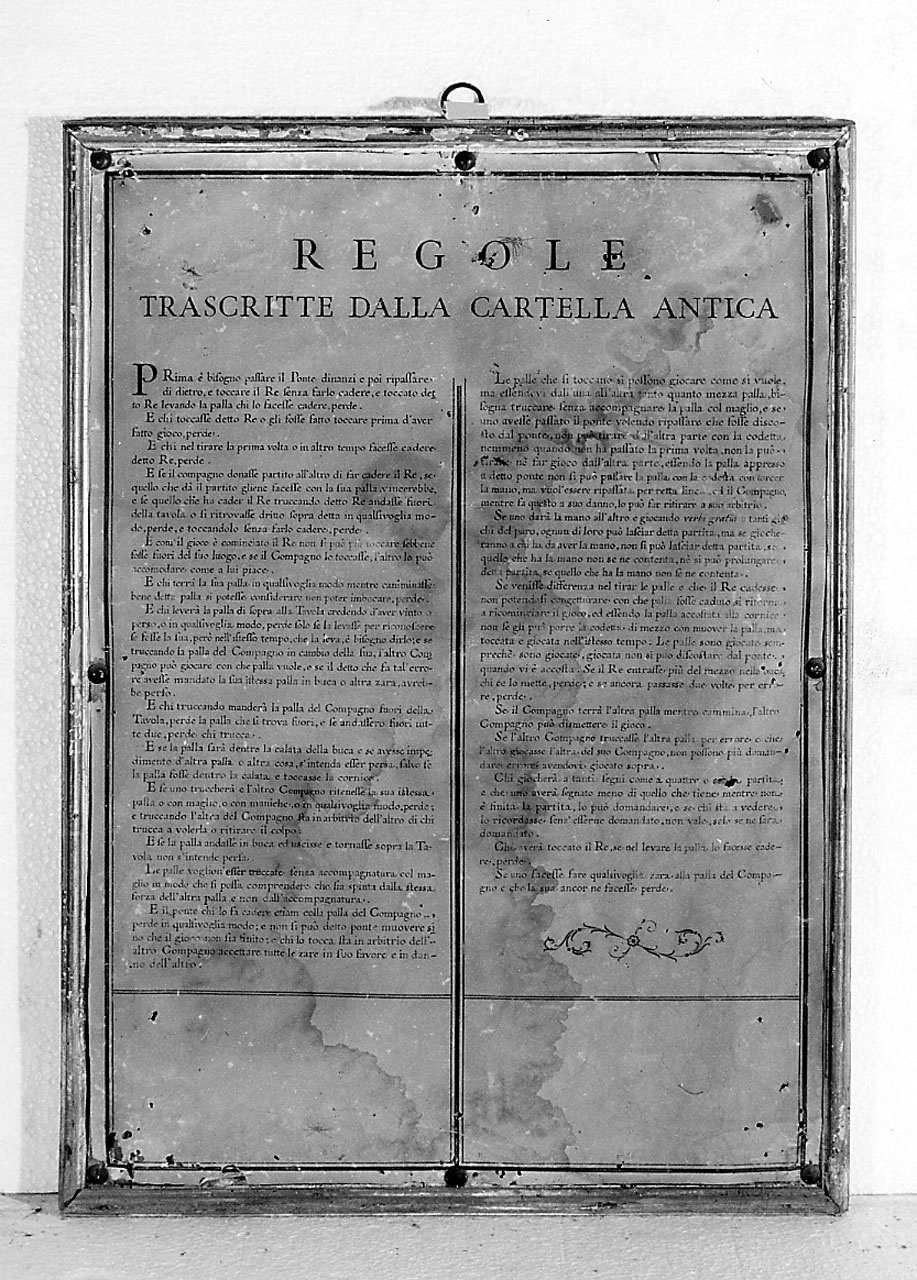 REGOLE
TRASCRITTE DALLA CARTELLA ANTICA
PRima è bisogno passare il Ponte dinanzi e poi ripassare
di dietro, e toccare il Re senza farlo cadere, e toccato det
to Re levando la palla chi lo facesse cadere, perde.
E chi toccasse detto Re o gli fosse fatto toccare prima d'aver
fatto gioco, perde.
E chi nel tirare la prima volta o in altro tempo facesse cadere
detto Re, perde.
E se il compagno donasse partito all'altro di far cadere il Re, se
quello che dà il partito gliene facesse con la sua palla, vincerebbe,
e se quello che ha cader il Re truccando detto Re andasse fuori
della tavola o si ritrovasse dritto sopra detta in qualsivoglia mo-
do, perde, e toccandolo senza farlo cadere, perde.
E com'il gioco è cominciato il Re non si può più toccare sebbene
fosse fuori del suo luogo, e se il Compagno lo toccasse, l'altro lo può
accomodare come a lui piace.
E chi terrà la sua palla in qualsivoglia modo mentre camminasse
bene detta palla si potesse considerare non poter imbucare, perde.
E chi leverà la palla di sopra alla Tavola credendo d'aver vinto o
perso, o in qualsivoglia modo, perde solo se la levasse per riconoscere
se fosse la sua, però nell'istesso tempo, che la leva, è bisogno dirlo; e se
truccando la palla del Compagno in cambio della sua, l'altro Com
pagno può giocare con che palla vuole, e se il detto che fa tal'erro-
re avesse mandato la sua istessa palla in buca o altra zara, avreb-
be perso.
E chi truccando manderà la palla del Compagno fuori della
Tavola, perde la palla che si trova fuori, e se andassero fuori tut-
te due, perde chi trucca.
E se la palla sarà dentro la calata della buca e se avesse impe
dimento d'altra palla o altra cosa, s'intenda esser persa, salvo se
la palla fosse dentro la calata e toccasse la cornice.
E se uno truccherà e l'altro Compagno ritenesse la sua istessa
palla o con maglio, o con maniche, o in qualsivoglia modo, perde;
e truccando l'altra del Compagno sta in arbitrio dell'altro di chi
trucca a volerla o ritirare il colpo.
E se la palla andasse in buca ed uscisse e tornasse sopra la Ta-
vola non s'intende persa.
Le palle voglion'esser truccate senza accompagnatura col ma-
glio in modo che si possa comprendere che sia spinta dalla stessa
forza dell'altra palla e non dall'accompagnatura.
E il ponte chi lo fa cadere etiam colla palla del Compagno
perde in qualsivoglia modo; e non si può detto ponte muovere si
no che il gioco non sia finito; e chi lo tocca sta in arbitrio dell'-
altro Compagno accettare tutte le zare in suo favore e in dan-
no dell'altro.
Le palle che si toccano si possono giocare come si vuole,
ma essendovi dall'una all'altra tanto quanto mezza palla, bi-
sogna truccare senza accompagnare la palla col maglio, e se
uno avesse passato il ponte volendo ripassare che fosse disco-
sto dal ponte, non può tirare dall'altra parte con la codetta,
nemmeno quando non ha passato la prima volta, non la può
né far gioco dall'altra parte, essendo la palla appresso
a detto ponte non si può passare la palla con la codetta con torcer
la mano, ma vuol'essere ripassata per retta linea, ed il Compagno,
mentre fa questo a suo danno, lo può far ritirare a suo arbitrio.
Se uno darà la mano all'altro e giocando verbi gratia a tanti gio
chi del paro, ognun di loro può lasciar detta partita, ma se gioche-
ranno a chi ha da aver la mano, non si può lasciar detta partita, se
quello che ha la mano non se ne contenta, né si può prolungare
detta partita, se quello che ha la mano non se ne contenta.
Se venisse differenza nel tirar le palle e che il Re cadesse
non potendosi congetturare con che palla fosse caduto si ritorna
a ricominciare il gioco, ed essendo la palla accostata alla cornice
non se gli può porre la codetta di mezzo con muover la palla, ma
toccata e giocata nell'istesso tempo. Le palle sono giocate sem-
preché sono giocate, giocata non si può discostare dal ponte
quando vi è accosto. Se il Re entrasse più del mezzo nella buca,
chi ce lo mette, perde; e se ancora passasse due volte per er-
re, perde.
Se il Compagno terrà l'altra palla mentre cammina, l'altro
Compagno può dismettere il gioco.
Se l'altro Compagno truccasse l'altra palla per errore e che
l'altro giocasse l'altra del suo Compagno, non possono più doman-
dare errore avendovi giocato sopra.
Chi giocherà a tanti segni come a quattro o partita
e che uno averà segnato meno di quello che tiene mentre non
è finita la partita, lo può domandare, e se chi sta a vedere
lo ricordasse senz'esserne domandato, non vale, solo se ne sarà
domandato.
Chi averà toccato il Re, se nel levare la palla lo facesse cade-
re, perde.
Se uno facesse fare qualsivoglia zara alla palla del Compa-
gno e che la sua ancor ne facesse perde.